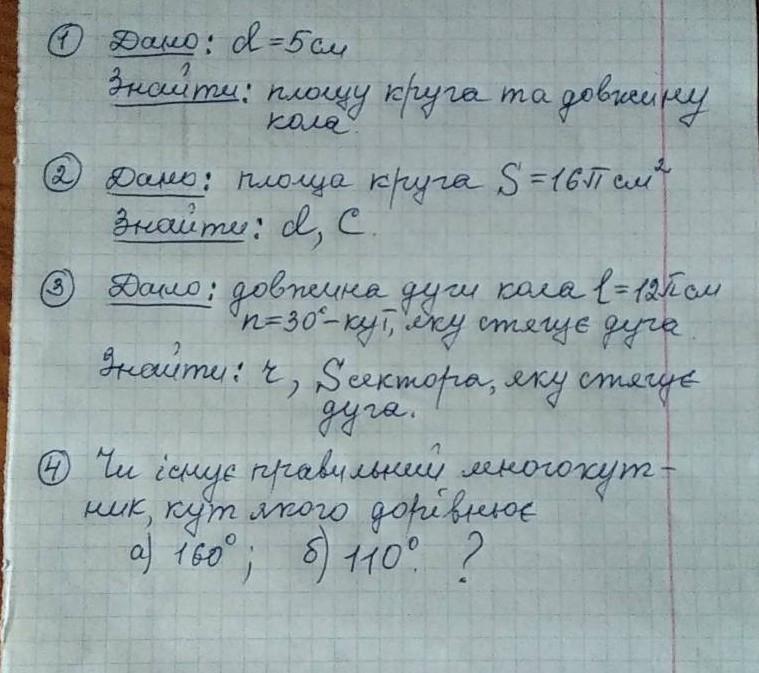 ① Дано: d = 5 см
Знайти: площу круга та довжину
кола.
② Дано: площа круга S = 16π см²
Знайти: d, C.
③ Дано: довжина дуги кола l = 12π см
n = 30° - кут, яку стягує дуга
Знайти: r, S сектора, яку стягує
дуга.
④ Чи існує правильний многокут-
ник, кут якого дорівнює
а) 160°; б) 110°. ?